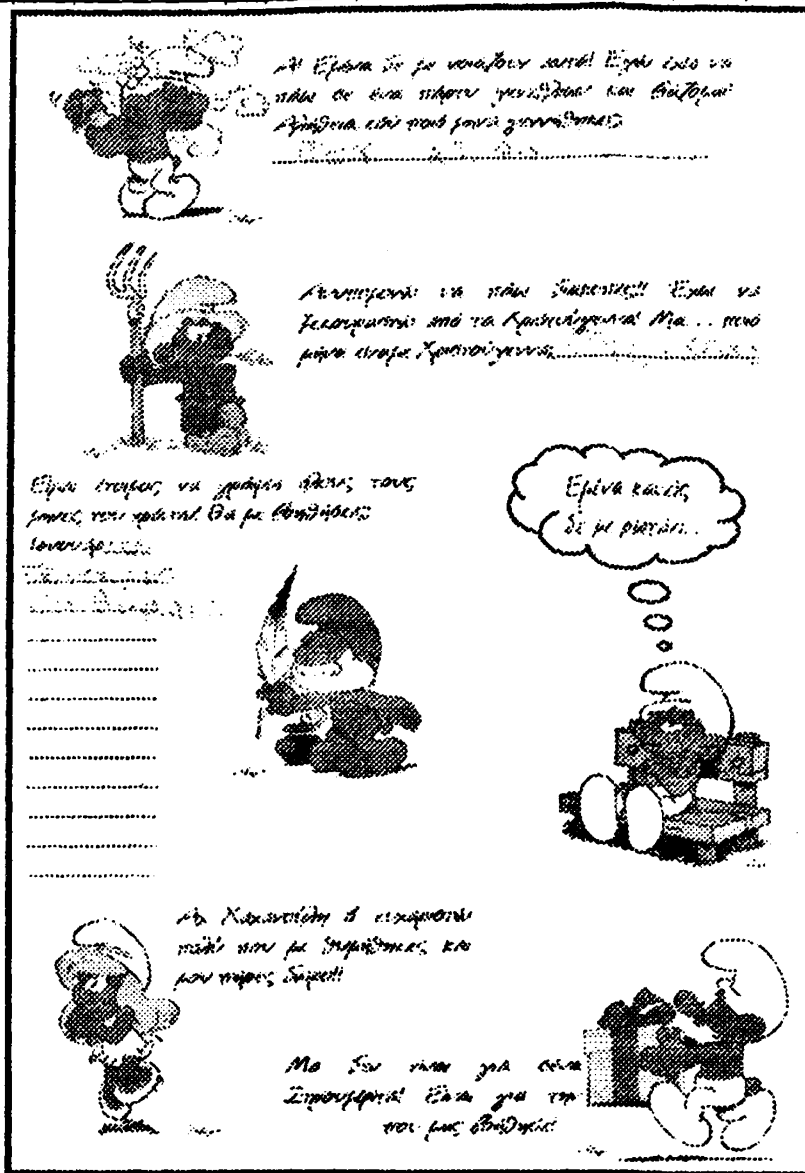 Α! Εμένα δε με νοιάζουν αυτά! Εγώ έχω να
πάω σε ένα πάρτυ γενεθλίων και βιάζομαι!
Αλήθεια εσύ ποιό μήνα γεννήθηκες;
να πάω διακοπές!! Έχω να
ξεκουραστώ από τα Χριστούγεννα! Μα... ποιό
μήνα είναι Χριστούγεννα;
Είμαι έτοιμος να γράψω όλους τους
μήνες του χρόνου! Θα με βοηθήσεις;
Ιανουάρ
Εμένα κανείς
δε με ρωτάει...
Αχ Χαχανούλη σ' ευχαριστώ
πολύ που με θυμήθηκες και
μου πήρες δώρο!!
Μα δεν είναι για σένα
Στρουμφίτα! Είναι για την
που μας βοήθησε!